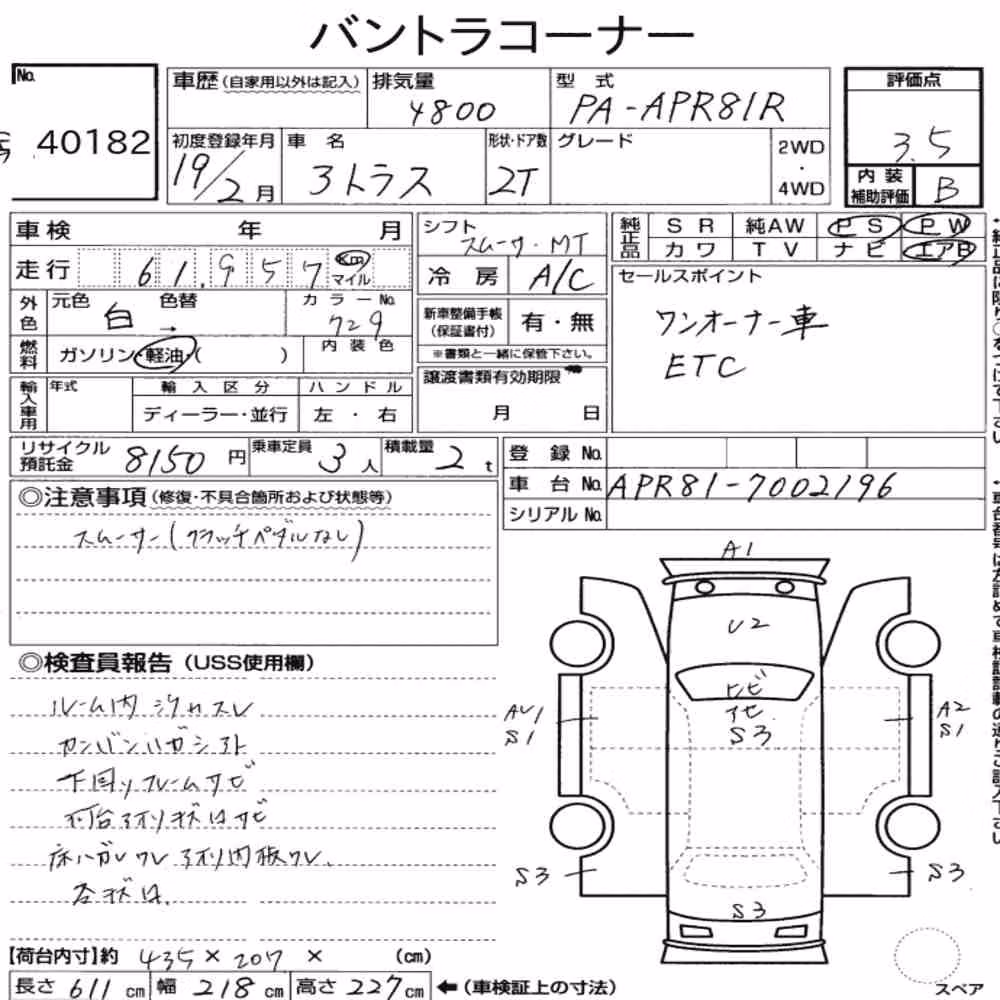 バントラコーナー
No. 40182
車歴 (自家用以外は記入)
排気量 4800
型式 PA-APR81R
評価点 3.5
内装補助評価 B
初度登録年月 19/2月
車名 3トラス
形状・ドア数 2T
グレード
2WD・4WD
車検 年 月
走行 61,957 Km マイル
シフト スムーサ・MT
冷房 A/C
純正品 SR 純AW PS PW
カワ TV ナビ エアB
外色 元色 白 → 色替 カラーNo. 729
燃料 ガソリン・軽油・( )
内装色
新車整備手帳(保証書付) 有・無
※書類と一緒に保管下さい。
セールスポイント
ワンオーナー車
ETC
輸入車用 年式 輸入区分 ハンドル
ディーラー・並行 左・右
譲渡書類有効期限
月 日
リサイクル預託金 8150円
乗車定員 3人
積載量 2t
登録No.
車台No. APR81-7002196
シリアルNo.
◎注意事項(修復・不具合箇所および状態等)
スムーサー(クラッチペダルなし)
◎検査員報告(USS使用欄)
ルーム内
下回リフレームサビ
A1
U2
S3
S1
A2
S1
S3
S3
S3
【荷台内寸】約 435 × 207 × (cm)
長さ 611 cm 幅 218 cm 高さ 227 cm ←(車検証上の寸法)
スペア